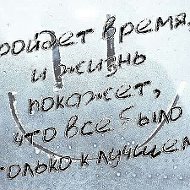 ройдет время,
и жизнь
покажет,
что все было
только к лучшем